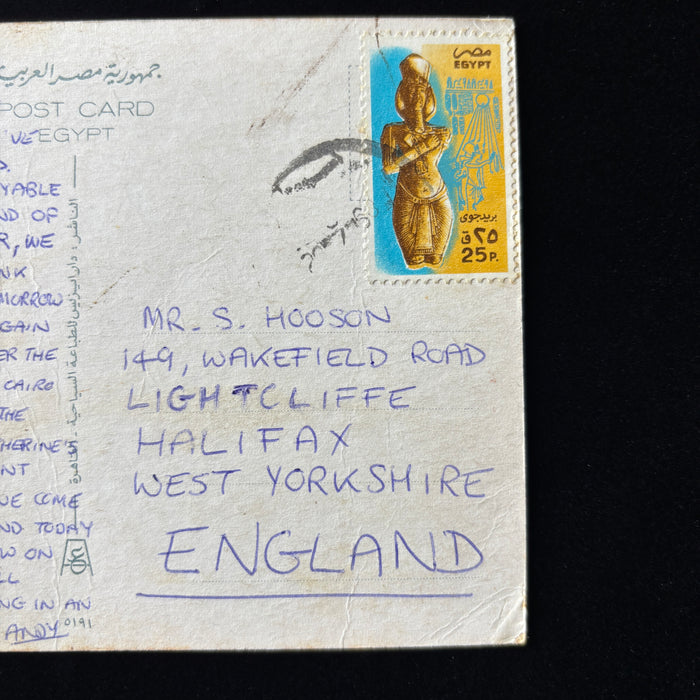 جمهورية مصر العربية
POST CARD
EGYPT
VE
D.
YABLE
ND OF
R, WE
NK
MORROW
GAIN
ER THE
CAIRO
THE
HERINE'S
NT
WE COME
ND TODAY
W ON
LL
NG IN AN
ANDY
0191
الناشر: دار
للطباعة السياحية - القاهرة
مصر
EGYPT
بريد جوى
٢٥ ق
25 P.
MR. S. HOOSON
149, WAKEFIELD ROAD
LIGHTCLIFFE
HALIFAX
WEST YORKSHIRE
ENGLAND